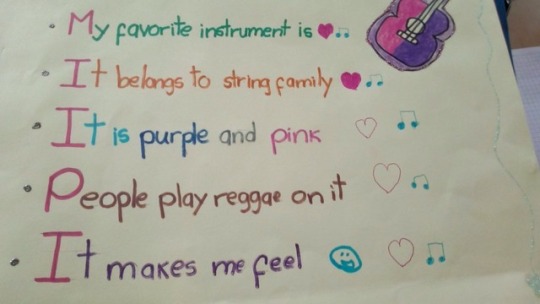 My favorite instrument is
It belongs to string family
It is purple and pink
People play reggae on it
It makes me feel